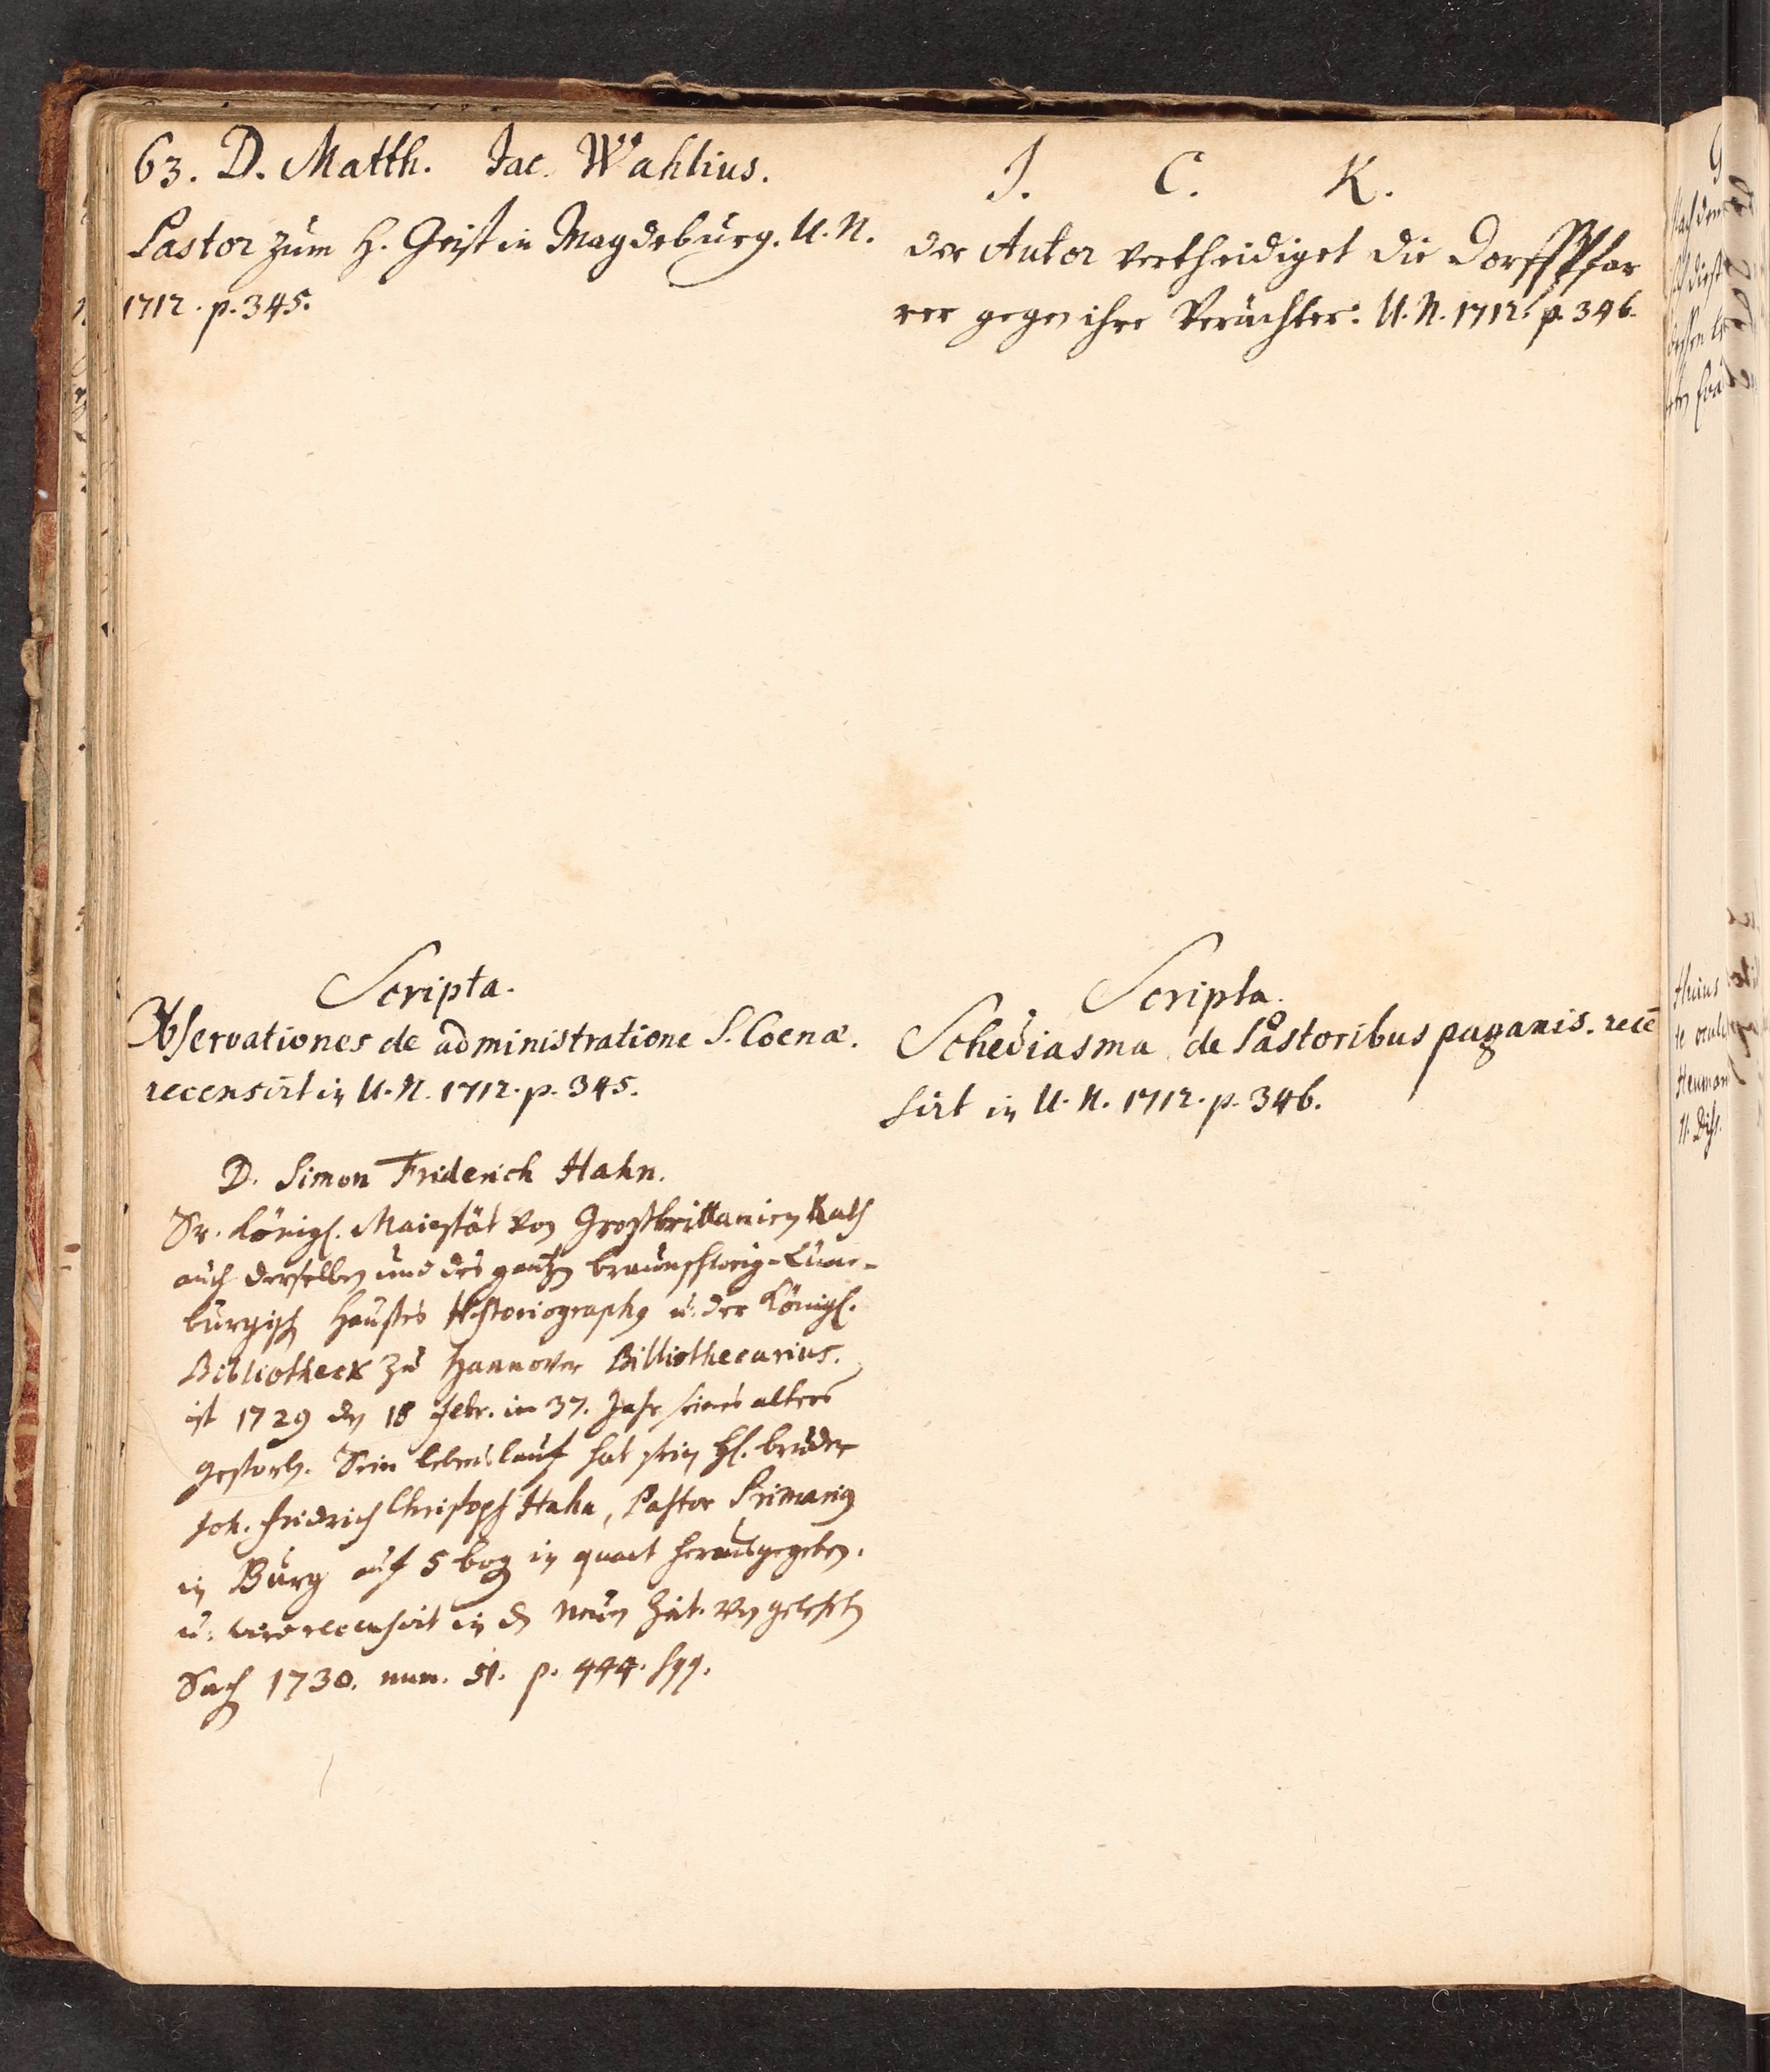 63. D. Matth. Jac. Wahlius.
Pastor zum H. Geist in Magdeburg. U. N.
1712. p. 345.
Scripta.
Observationes de administratione S. Coenæ.
recensirt in U. N. 1712. p. 345.
D. Simon Friderich Hahn.
Sr. Königl. Maiestät von Großbrittanien Rath
auch derselben und des gantzen braunschweig-Lüne-
burgisch Haußes Historiographus u. der Königl.
Bibliotheck zu Hannover Bibliothecarius.
ist 1729 den 18 Febr. im 37. Jahr seines alters
gestorben. Sein lebenslauf hat sein Hl. bruder
Joh. Friedrich Christoph Hahn, Pastor Primarius
in Burg auf 5 bog in quart herausgegeben.
u. wird recensirt in den neuen Zeit. von gelehrten
Sach 1730. num. 51. p. 444. sqq.
J. C. K.
der Autor vertheidiget die Dorffpfar
rer gegen ihre Verächter. U. N. 1712. p. 346.
Scripta.
Schediasma de Pastoribus paganis. recē
sirt in U. N. 1712. p. 346.